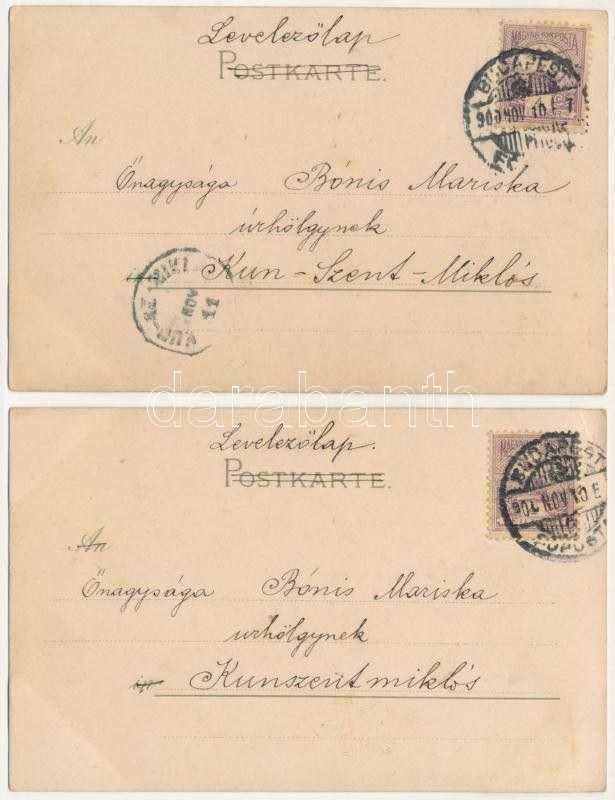 Levelezőlap
POSTKARTE.
MAGYAR KIR. POSTA
BUDAPEST
900 NOV 10
An
Őnagysága Bónis Mariska
úrhölgynek
Kun-Szent-Miklós
NOV
11
darabanth
Levelezőlap.
POSTKARTE.
BUDAPEST
NOV 10 E
An
Őnagysága Bónis Mariska
urhölgynek
in Kunszentmiklós